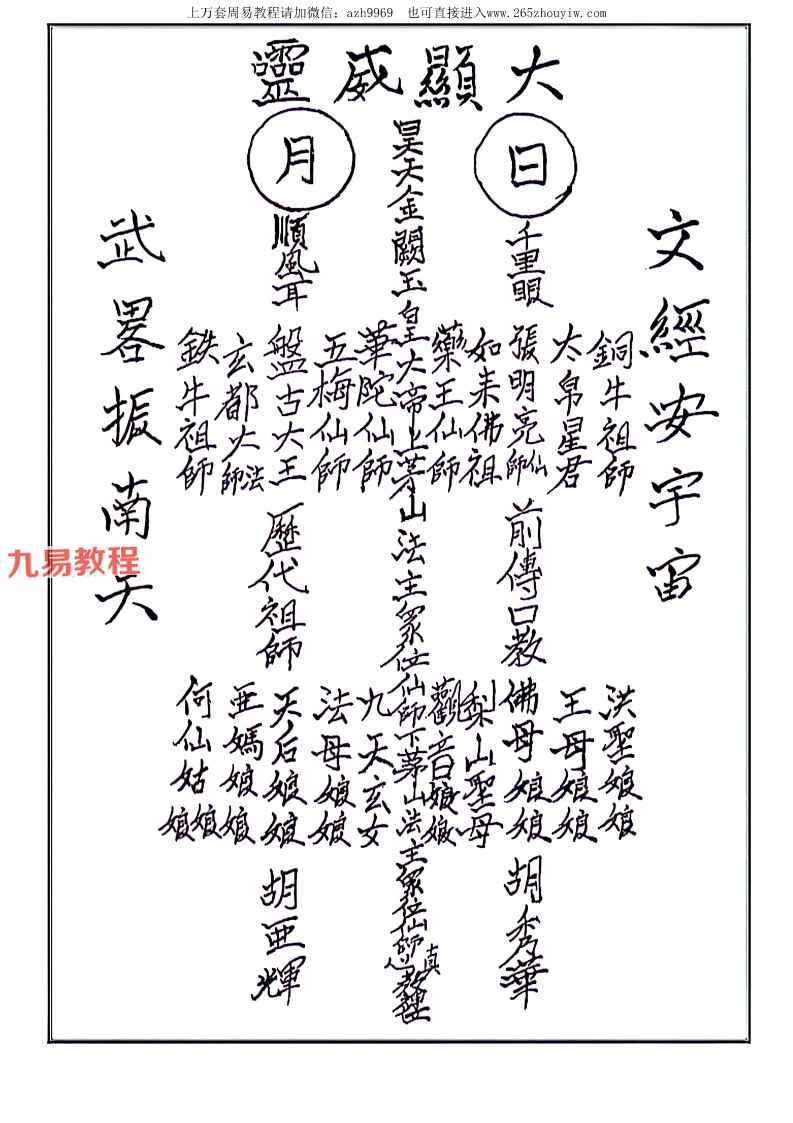 上万套周易教程请加微信：azh9969　也可直接进入www.265zhouyiw.com
大顯威靈
日
月
文經安宇宙
銅牛祖師
太帛星君
千里眼
張明亮仙師
如来佛祖
藥王仙師
昊天金闕玉皇大帝上茅山法主眾位仙師下茅山法主眾位仙師真教
華陀仙師
五梅仙師
順風耳
盤古大王
玄都大法師
鉄牛祖師
武畧振南天
前傳口教
歷代祖師
洪聖娘娘
王母娘娘
佛母娘娘
梨山聖母
觀音娘娘
九天玄女
法母娘娘
天后娘娘
亜媽娘娘
何仙姑娘
胡秀華
胡亜輝
九易教程